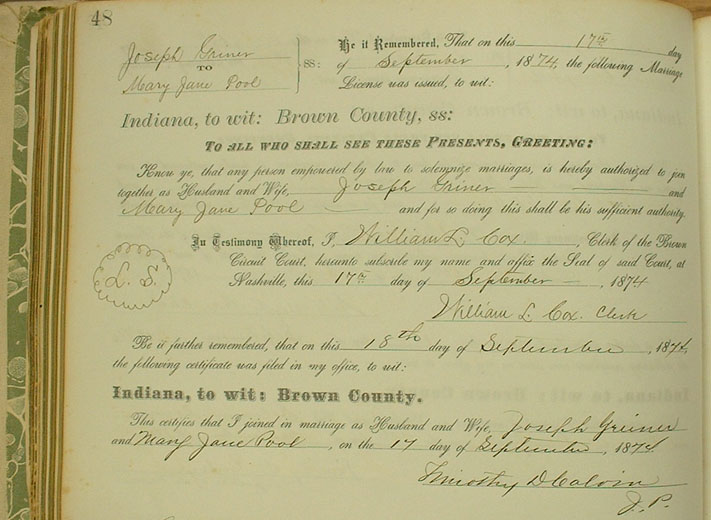 48
Joseph Griner
TO
Mary Jane Pool
ss:
Be it Remembered, That on this 17th day
of September, 1874, the following Marriage
License was issued, to wit:
Indiana, to wit: Brown County, ss:
To all who shall see these Presents, Greeting:
Know ye, that any person empowered by law to solemnize marriages, is hereby authorized to join
together as Husband and Wife, Joseph Griner and
Mary Jane Pool and for so doing this shall be his sufficient authority.
In Testimony Whereof, I, William L. Cox, Clerk of the Brown
Circuit Court, hereunto subscribe my name and affix the Seal of said Court, at
Nashville, this 17th day of September, 1874
L. S.
William L. Cox. Clerk
Be it further remembered, that on this 18th day of September, 1874,
the following certificate was filed in my office, to wit:
Indiana, to wit: Brown County.
This certifies that I joined in marriage as Husband and Wife, Joseph Greiner
and Mary Jane Pool, on the 17 day of September, 1874
Timothy D Calvin
J. P.